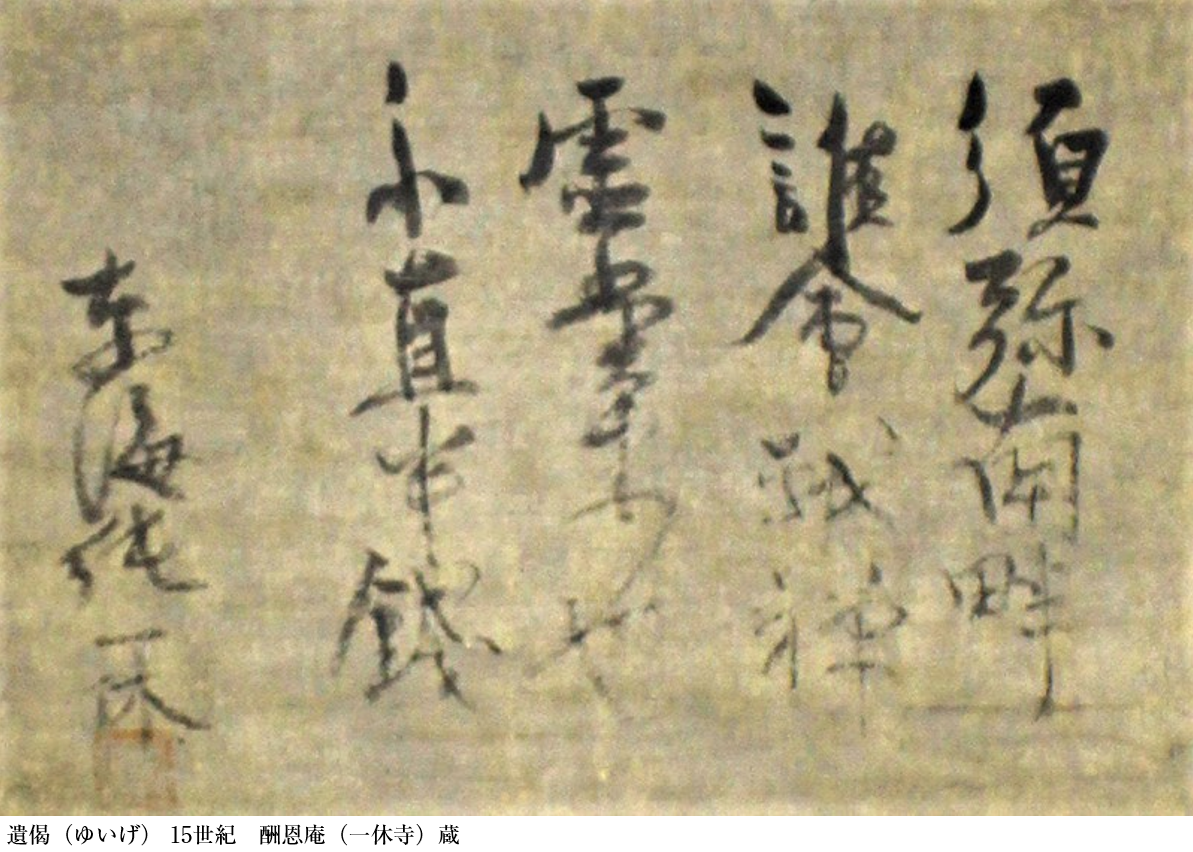 須弥南畔
誰会我禅
虚堂来也
不直半銭
東海純一休
遺偈（ゆいげ） 15世紀　酬恩庵（一休寺）蔵